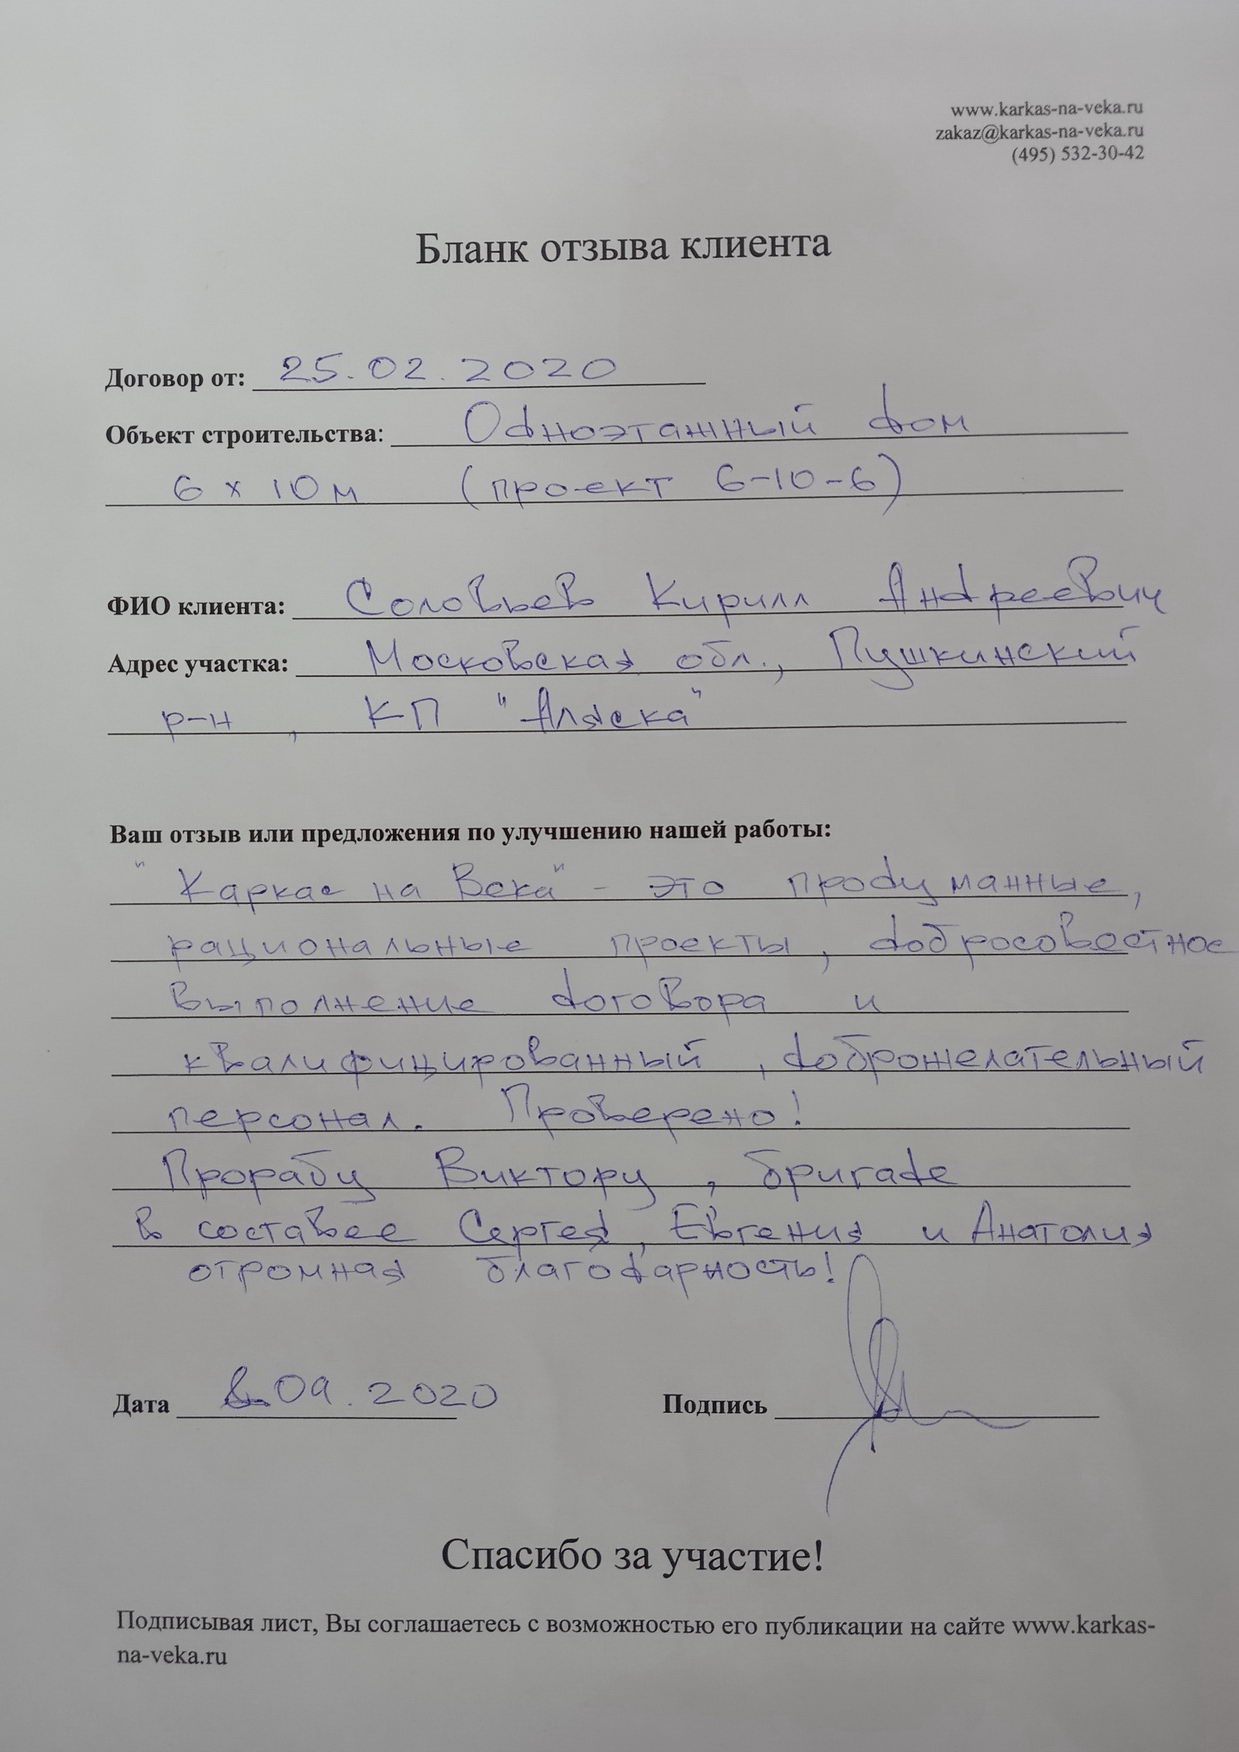 www.karkas-na-veka.ru
zakaz@karkas-na-veka.ru
(495) 532-30-42
Бланк отзыва клиента
Договор от: 25.02.2020
Объект строительства: Одноэтажный дом
6 х 10 м (проект 6-10-6)
ФИО клиента: Соловьев Кирилл Андреевич
Адрес участка: Московская обл., Пушкинский
р-н, КП "Аляска"
Ваш отзыв или предложения по улучшению нашей работы:
"Каркас на Века" - это продуманные,
рациональные проекты, добросовестное
выполнение договора и
квалифицированный, доброжелательный
персонал. Проверено!
Прорабу Виктору, бригаде
в составее Сергея, Евгения и Анатолия
огромная благодарность!
Дата 09.2020 Подпись
Спасибо за участие!
Подписывая лист, Вы соглашаетесь с возможностью его публикации на сайте www.karkas-
na-veka.ru